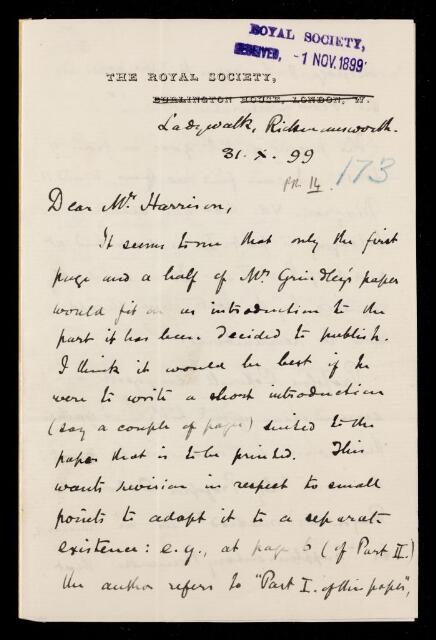 ROYAL SOCIETY,
RECEIVED,
1 NOV. 1899
THE ROYAL SOCIETY,
BURLINGTON HOUSE, LONDON, W.
Ladywalk, Rickmansworth.
31. X. 99
PR. 14.
173
Dear Mr. Harrison,
It seems to me that only the first
page and a half of Mr. Grindley's paper
would fit on as introduction to the
part it has been decided to publish.
I think it would be best if he
were to write a short introduction
(say a couple of pages) suited to the
paper that is to be printed. This
wants revision in respect to small
points to adapt it to a separate
existence: e.g., at page 6 (of Part II.)
the author refers to "Part I. of this paper",